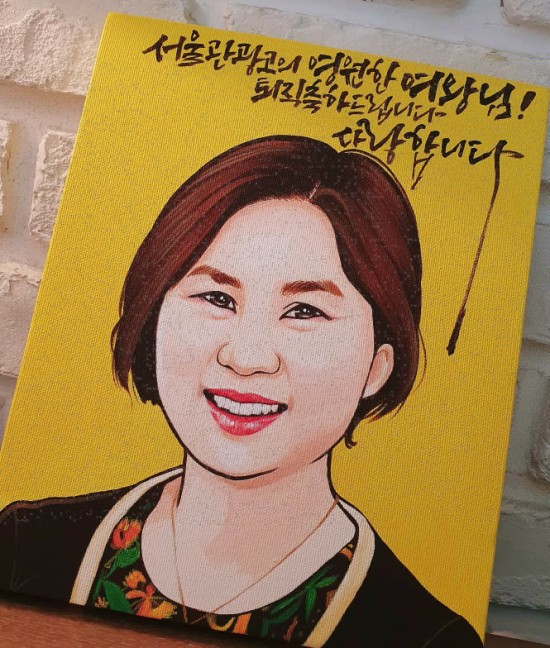 서울관광고의 영원한 여왕님!
퇴직축하드립니다
사랑합니다